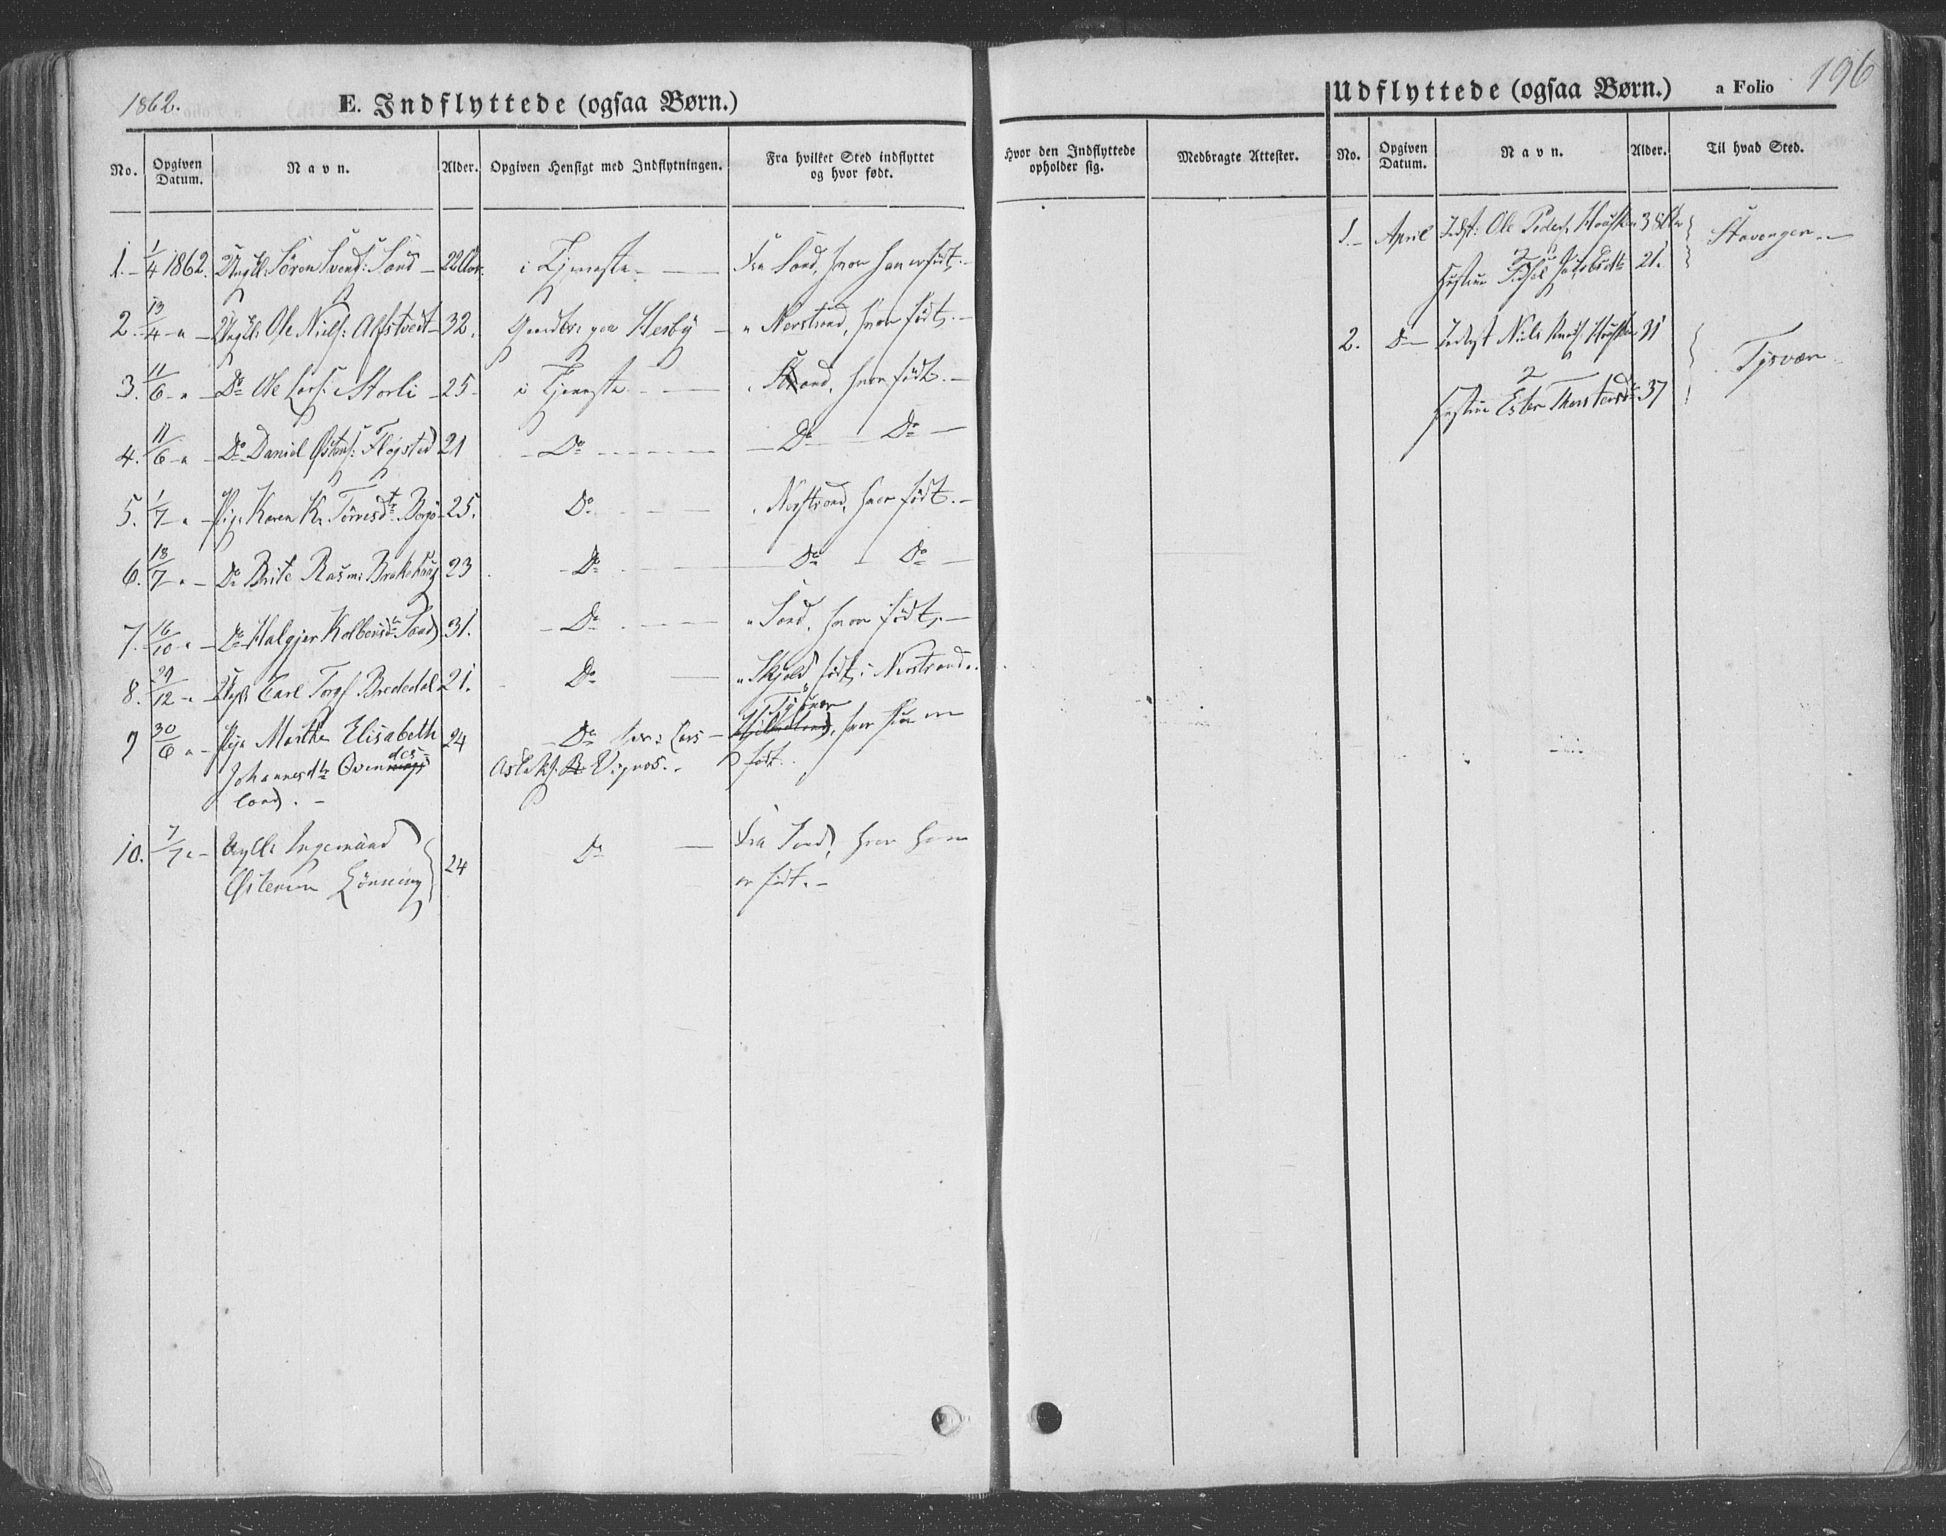 1862.
E. Indflyttede (ogsaa Børn.)
No. Opgiven Datum. Navn. Alder. Opgiven Hensigt med Indflytningen. Fra hvilket Sted indflyttet og hvor født.
1. 1/4 1862. Ungk. Sören Svends: Sand 22 Aar. i Tjeneste Fra Sand, hvor han er født.
2. 13/4 " Ungk. Ole Niels: Alfstveit 32. paa Hesby " Nerstrand, hvor født.
3. 11/6 " Do Ole Lars: Storli 25 i Tjeneste Sand, hvor født.
4. 11/6 " Do Daniel Østens: Fløgsted 21 Do Do Do
5. 1/7 " Pige Karen K. Tørresdtr 25. Do Nerstrand, hvor født.
6. 13/7 " Do Brite Rasm: 23 Do Do Do
7. 16/10 " Do Halgjer Kolbensdtr Sand 31. Do " Sand, hvor født.
8. 29/12 " Ungk. Carl Torgs Brededal 21. Do " Skjold født i Nerstrand.
9 30/6 " Pige Marthe Elisabeth 24 Do hos: Lars Tysvær hvor hun er
Johannesdtr Ovendes- Aslaks: Vignes. født.
land.
10. 7/7 " Ugk. Ingemund 24 Do Fra Sand, hvor han
Østensen Lönning er født.
Hvor den Indflyttede opholder sig. Medbragte Attester.
Udflyttede (ogsaa Børn.) a Folio 196
No. Opgiven Datum. Navn. Alder. Til hvad Sted.
1. April Inds: Ole Peders: 38 Aar Stavanger.
Hustru 21.
2. Do Inds Niels 31 Tysvær
Hustru Ester Thorstensdtr 37